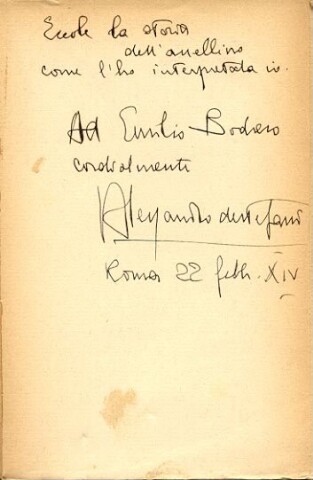 Eccole la storia
dell'anellino
come l'ho interpretata io.
Ad Emilio Bodrero
cordialmente
Alessandro deStefani
Roma 22 febb. XIV